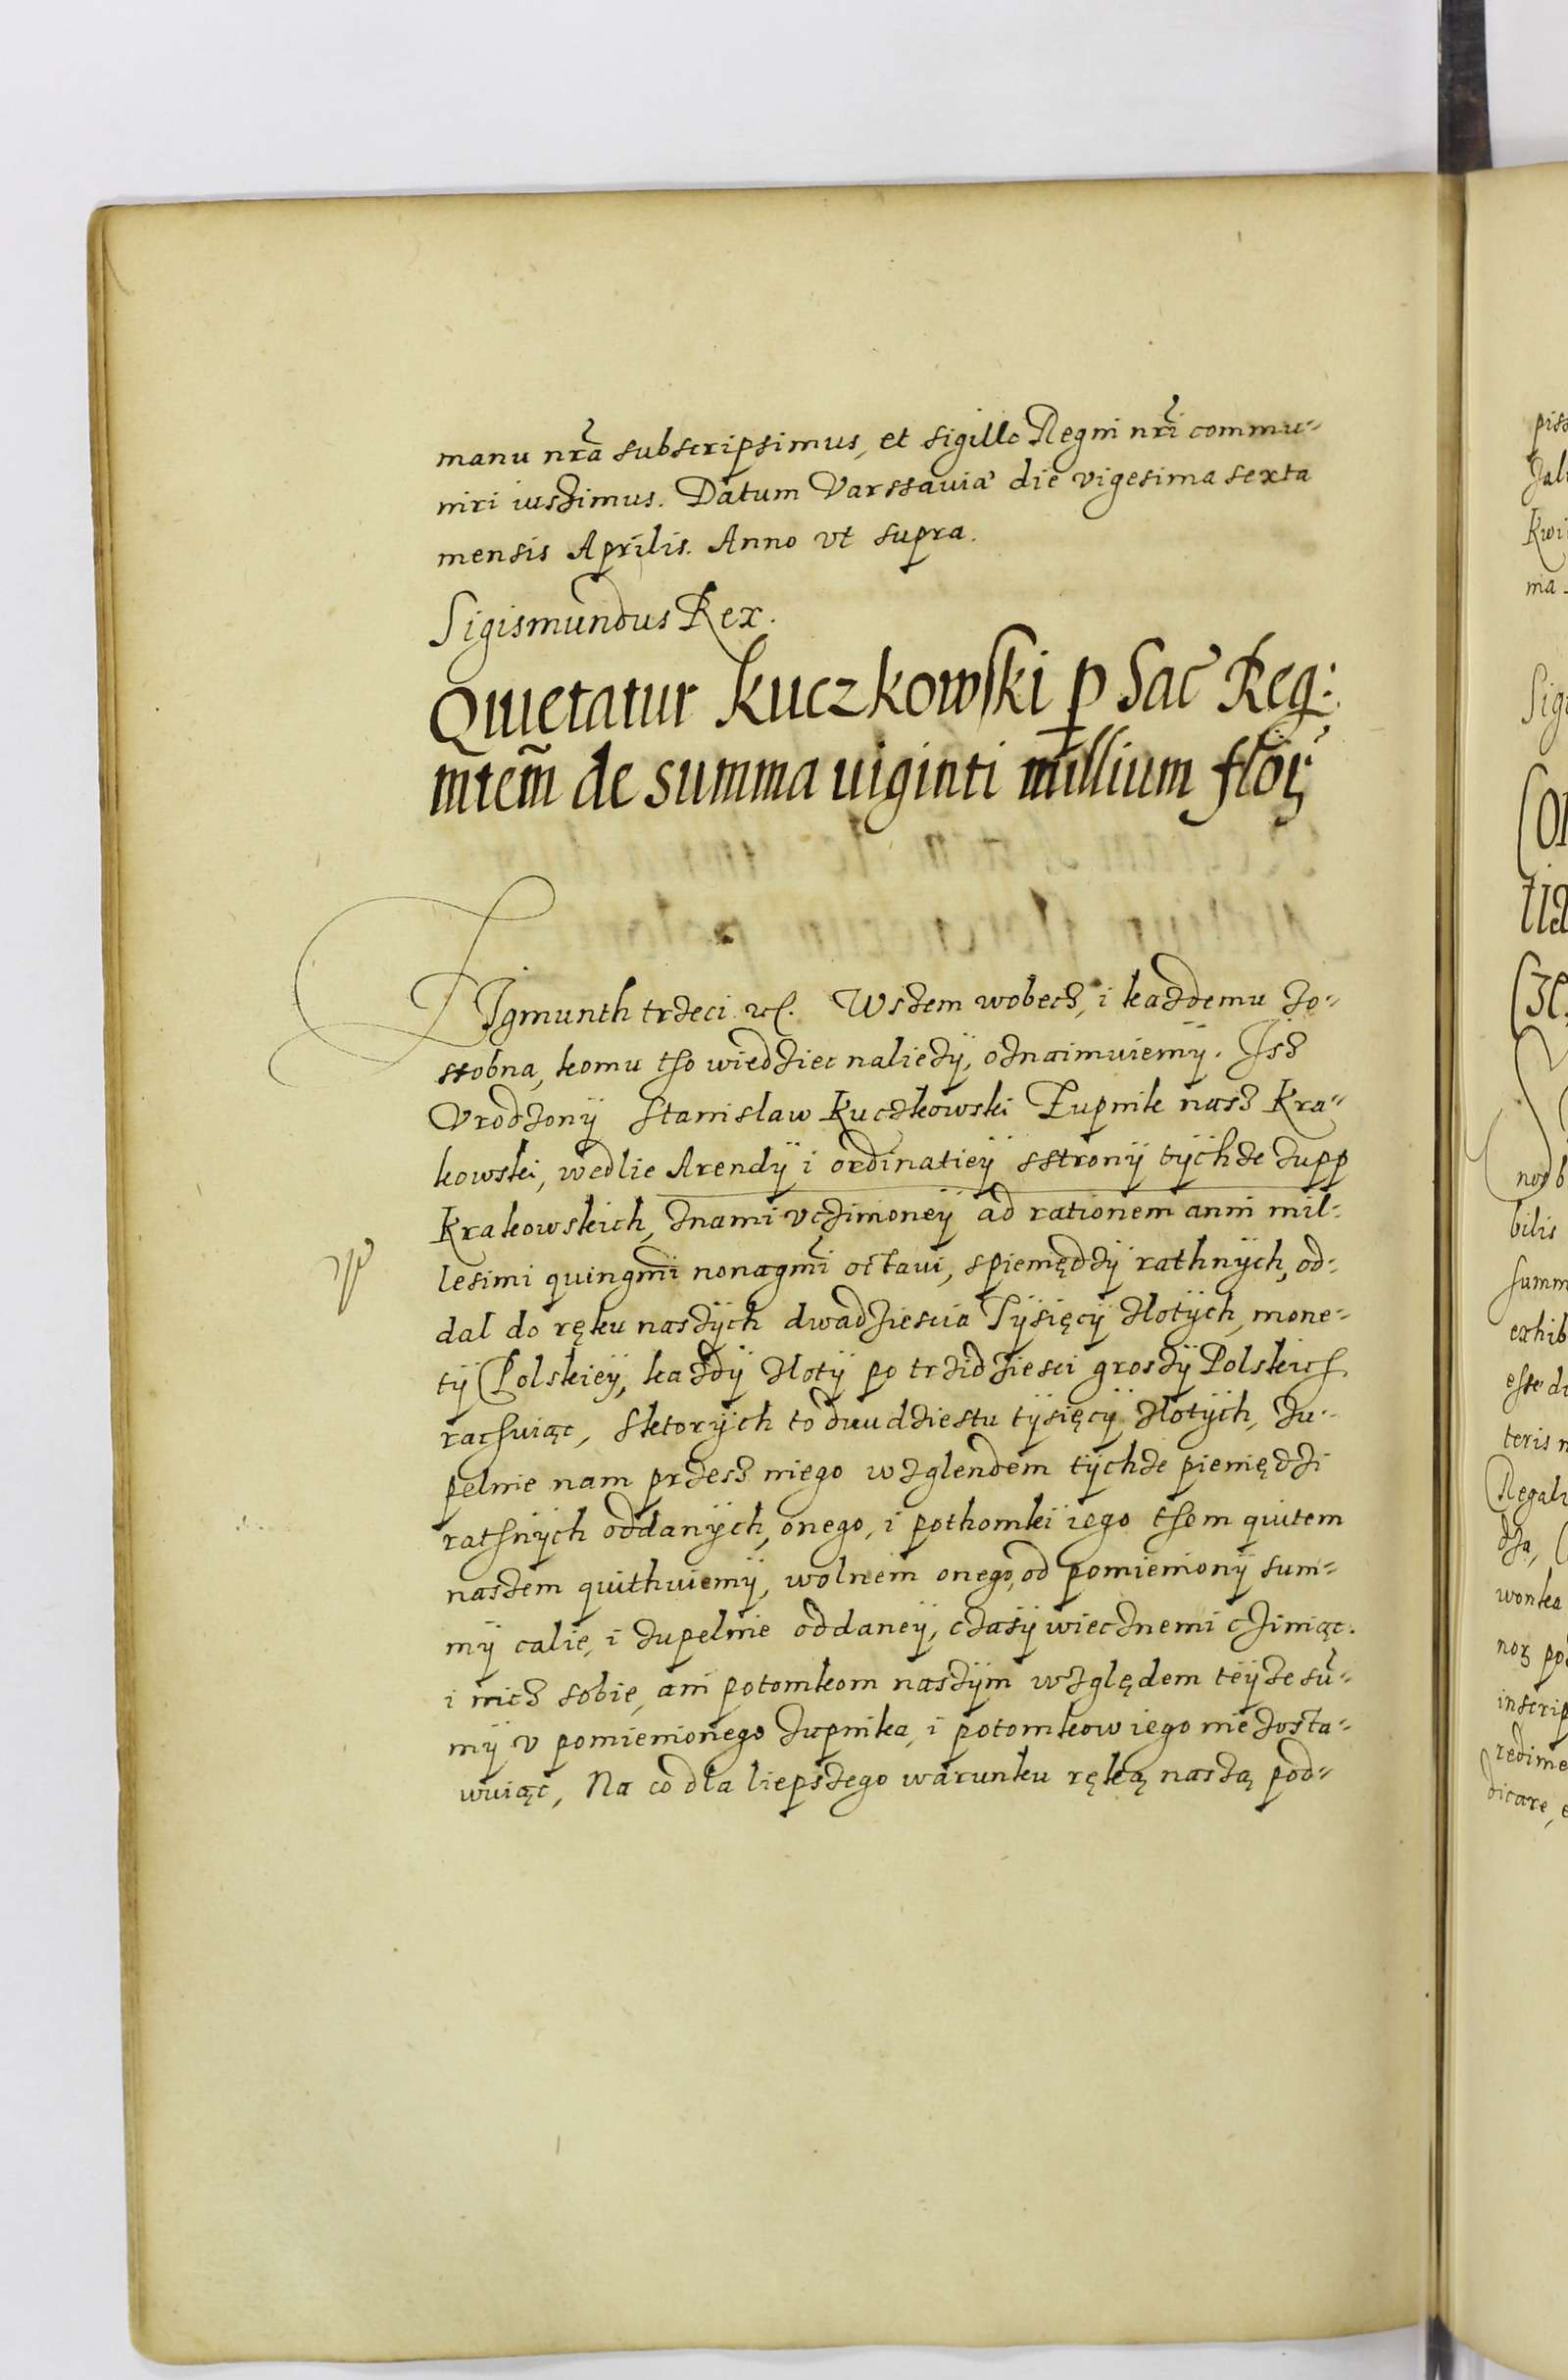 manu nr̃a subscripsimus, et sigillo Regni nr̃i commu=
niri iussimus. Datum Varssauiæ die vigesima sexta
mensis Aprilis. Anno vt supra.
Sigismundus Rex.
Quietatur Kuczkowski p Sac Reg:
mtem̃ de summa uiginti millium flor
Zigmunth trzeci etc. Wszem wobecz, i kazdemu zo=
ssobna, komu tho wiedziec naliezÿ, oznaimuiemÿ. Isz
Vrodzonÿ Stanislaw Kuczkowski Zupnik nasz Kra=
kowski, wedlie Arendÿ i ordinatieÿ sstronÿ tÿchze zupp
Krakowskich, znami vczinioneÿ ad rationem anni mil=
lesimi quingmi nonagmi octaui, spieniędzÿ rathnÿch, od=
dal do ręku naszÿch dwadziescia Tÿsięcÿ zlotÿch, mone=
tÿ Polskieÿ, kazdÿ zlotÿ po trzidziesci groszÿ Polskich
rachuiąc, Sktorÿch to dwudziestu tÿsięcÿ zlotÿch, zu=
pelnie nam przesz niego wzglendem tÿchze pieniędzi
rathnÿch oddanÿch, onego, i pothomki iego them quitem
naszem quithuiemÿ, wolnem onego, od pomienionÿ sum=
mÿ calie, i zupelnie oddaneÿ, czasÿ wiecznemi cziniąc.
i nicz sobie, ani potomkom naszÿm względem teÿze sum̃=
mÿ v pomienionego zupnika, i potomkow iego nie zosta=
wuiąc, Na co dla liepszego warunku ręką naszą pod=